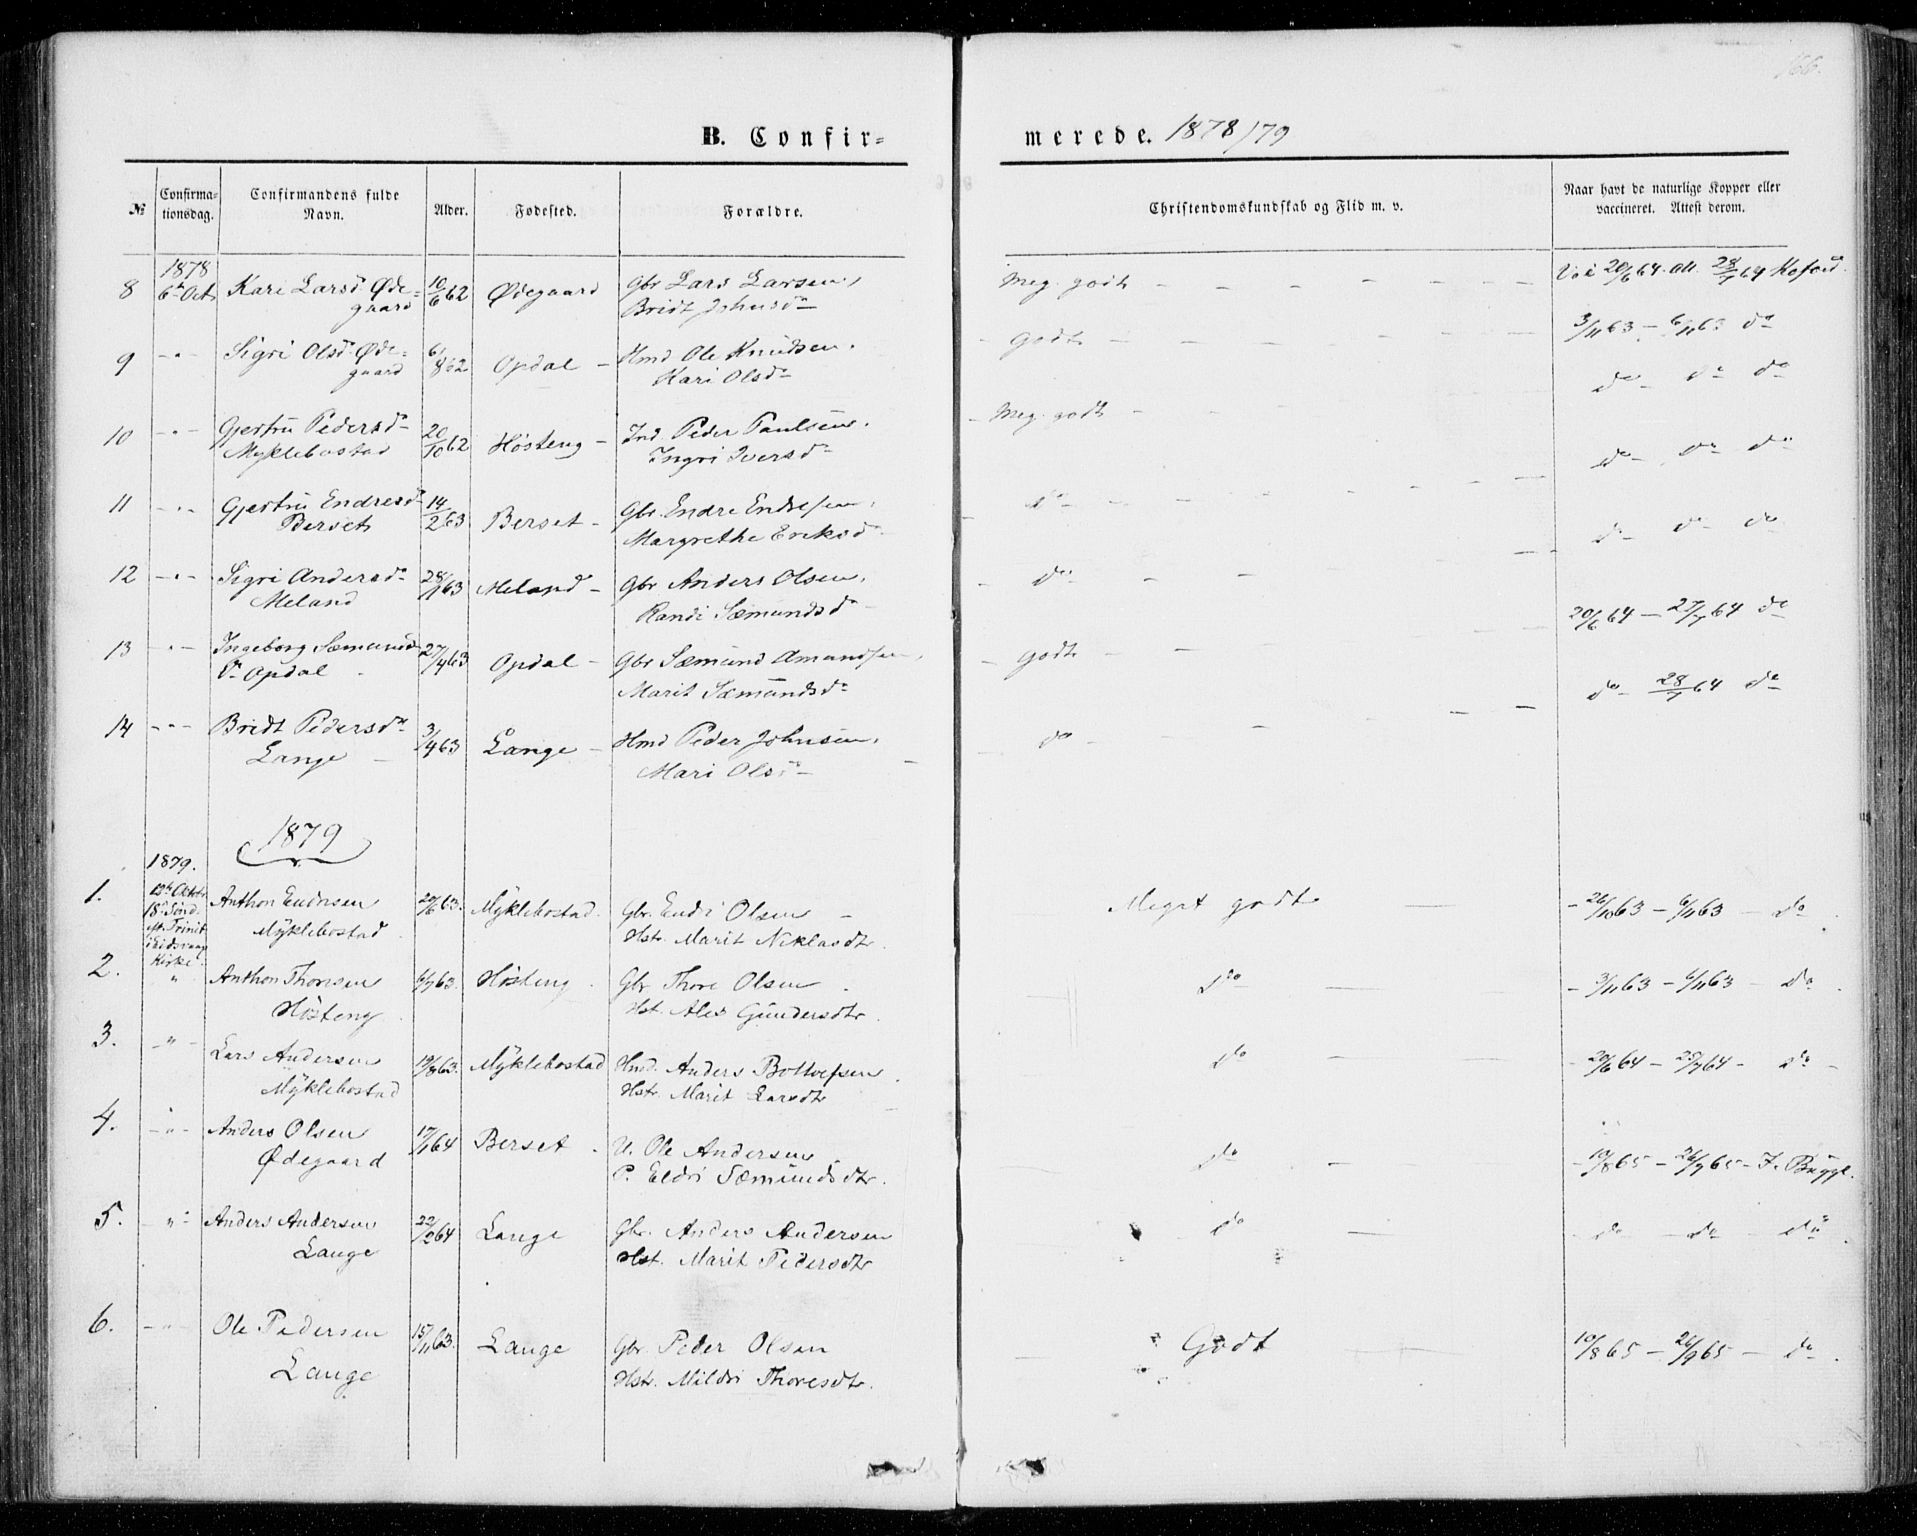 166.
B. Confir=
merede. 1878/79
№ Confirma-tionsdag. Confirmandens fulde Navn. Alder. Fødested. Forældre. Christendomskundskab og Flid m. v. Naar havt de naturlige Kopper eller vaccineret. Attest derom.
1878
8 6te Oct Kari Larsd Øde= 10/6 62 Ødegaard Gbr Lars Larsen, Meg. godt – – – Vac 20/6 64. att. 28/7 64 Koford.
gaard Bridt Johnsd
9 –"– Sigri Olsd Øde= 6/8 62 Opdal – Hmd Ole Knudsen, Godt – – 3/11 63 – 6/11 63 do
gaard Kari Olsd
10 –"– Gjertru Pedersd 20/10 62 Hösteng – Ind. Peder Paulsen, Meg. godt – do – do do
Myklebostad Ingri Iversd
11 –"– Gjertru Endresd 14/2 63 Berset – Gbr. Endre Endresen, do – – do – do do
Berset Margrethe Eriksd
12 –"– Sigri Andersd 28/1 63 Meland – Gbr Anders Olsen, do – do – do do
Meland Randi Sæmundsd
13 –"– Ingeborg Sæmunds 27/4 63 Opdal – Gbr Sæmund Amundsen, Godt – – 20/6 64 – 27/7 64 do
d Opdal Marit Sæmundsd
14 –"– Bridt Pedersd 3/4 63 Lange – Hmd Peder Johnsen, do – do – 28/7 64 do
Lange – Mari Olsd –
1879
1879.
1. 12te Oktbr Anthon Endresen 20/6 63. Myklebostad. Gbr. Endri Olsen – Meget godt – – 26/10 63 – 6/11 63 – do
18 Sønd. Myklebostad Hstr. Marit Niklasdtr.
eft. Trinit
i Eidsvaag
Kirke.
2. " Anthon Thoresen 6/7 63. Hösteng. Gbr Thore Olsen do – – 3/11 63 – 6/11 63 – do
Hösteng Hst. Ales Gundersdtr.
3. –"– Lars Andersen 19/8 63. Myklebostad Hmd. Anders Bottolfsen do – – 20/6 64 – 28/7 64 – do –
Myklebostad Hstr. Marit Larsdtr
4. –"– Anders Olsen 17/1 64 Berset. U. Ole Andersen do – – 10/8 65 – 26/9 65 – F. Buggl.
Ødegaard P. Eldri Sæmundsdtr.
5. –"– Anders Andersen 22/2 64 Lange Gbr. Anders Andersen do – – do – do – do
Lange Hst. Marit Pedersdtr
6. –"– Ole Pedersen 15/11 63. Lange Gbr. Peder Olsen Godt 10/8 65 – 26/9 65 – do.
Lange Hstr. Mildri Thoresdtr.